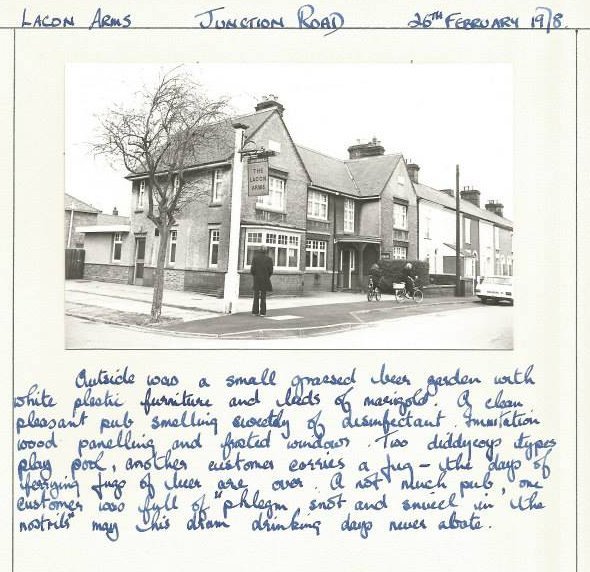 LACON ARMS JUNCTION ROAD 26TH FEBRUARY 1978.
THE
LACON
ARMS
Outside was a small grassed beer garden with
white plastic furniture and beds of marigold. A clean
pleasant pub smelling sweetly of disinfectant. Immitation
wood panelling and frosted windows. Two diddycoy types
play pool, another customer carries a jug - the days of
ferrying jugs of beer are over. A not much pub, one
customer was full of "phlegm, snot and snivel in the
nostrils" may his dram drinking days never abate.